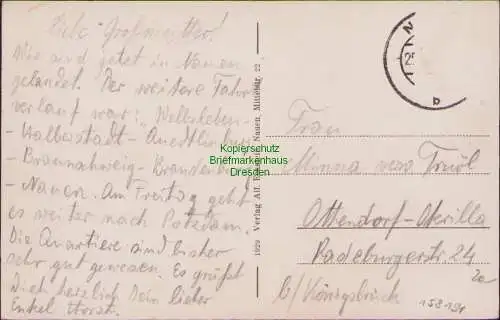 Liebe Großmutter!
Wir sind jetzt in Nauen
gelandet. Der weitere Fahrt-
verlauf war: Wolbsleben-
- Halberstadt - Quedlinburg
- Braunschweig - Brandenburg
- Nauen. Am Freitag geht
es weiter nach Potsdam.
Die Quartiere sind bisher
sehr gut gewesen. Es grüßt
Dich herzlich Dein lieber
Enkel Horst.
1629 Verlag Alf. Nauen, Mittelstr. 22
b
Frau
Minna verw.
Ottendorf-Okrilla
Radeburgerstr. 24
b/Königsbrück
158191
Kopierschutz
Briefmarkenhaus
Dresden